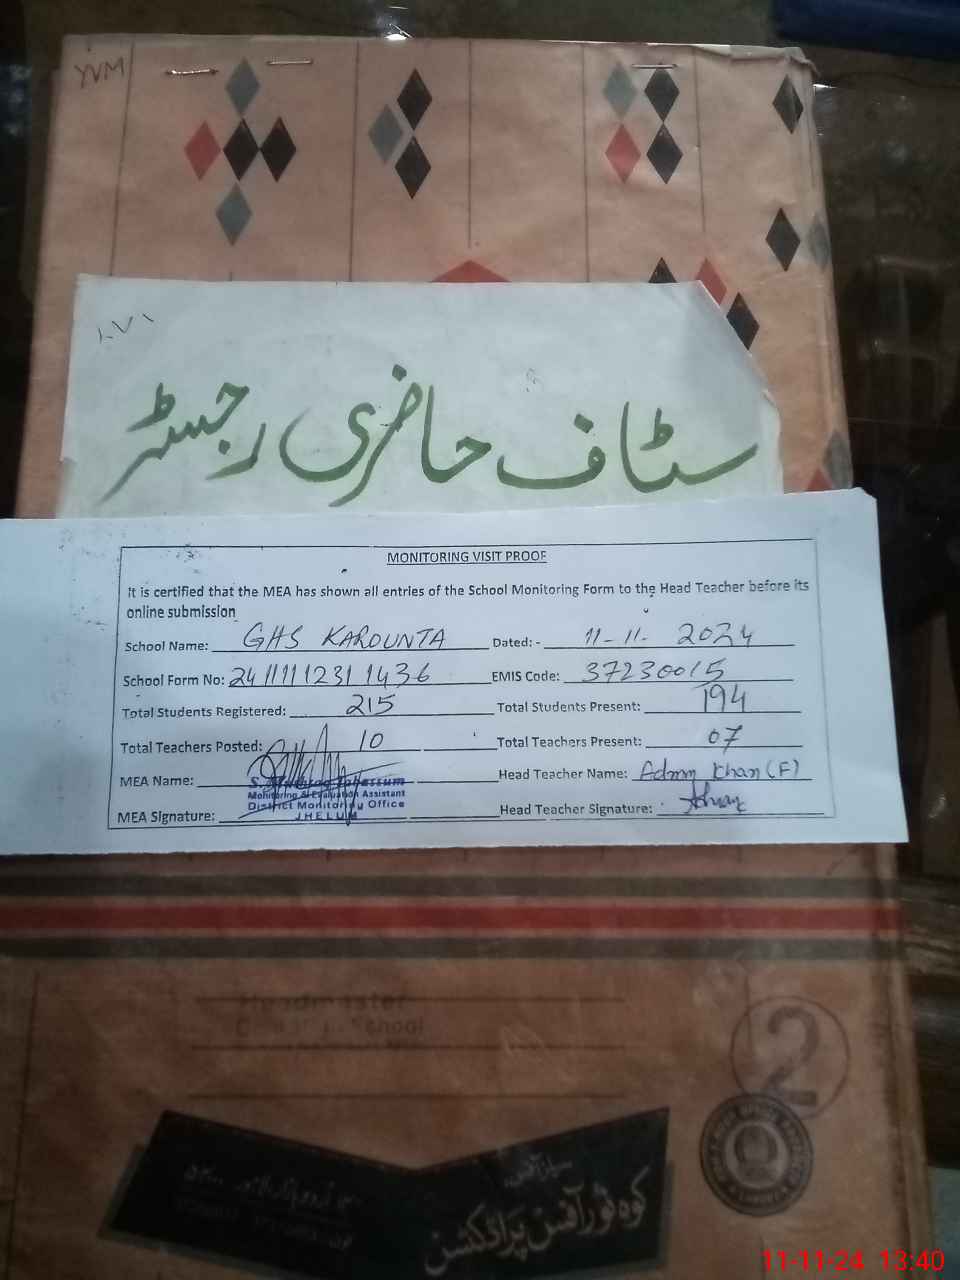 YVM
۱۷۸
سٹاف حاضری رجسٹر
MONITORING VISIT PROOF
It is certified that the MEA has shown all entries of the School Monitoring Form to the Head Teacher before its
online submission
School Name: GHS KAROUNTA Dated: - 11-11- 2024
School Form No: 2411111231 1436 EMIS Code: 37230015
Total Students Registered: 215 Total Students Present: 194
Total Teachers Posted: 10 Total Teachers Present: 07
MEA Name: Head Teacher Name: Khan (F)
Monitoring & Evaluation Assistant
District Monitoring Office
MEA Signature: JHELUM Head Teacher Signature:
Headmaster
School
2
کوہ نور آفس پراڈکٹس
11-11-24 13:40